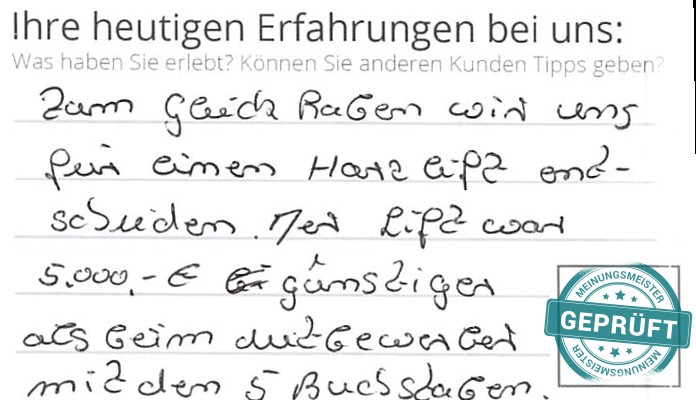 Ihre heutigen Erfahrungen bei uns:
Was haben Sie erlebt? Können Sie anderen Kunden Tipps geben?
Zum Glück haben wir uns
für einen Harz Lift end-
schieden. Der Lift war
5.000,- € günstiger
als beim mitbewerber
mit den 5 Buchstaben.
MEINUNGSMEISTER
GEPRÜFT
MEINUNGSMEISTER